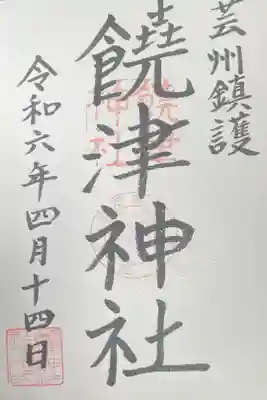 芸州鎮護
饒津神社
令和六年四月十四日